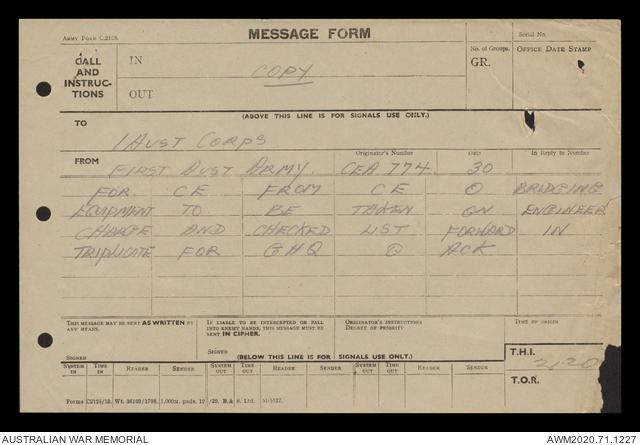 ARMY FORM C.2128.
MESSAGE FORM
Serial No.
CALL AND INSTRUC-TIONS
IN
COPY
OUT
No. of Groups.
GR.
OFFICE DATE STAMP
(ABOVE THIS LINE IS FOR SIGNALS USE ONLY.)
TO
1 AUST CORPS
FROM
Originator's Number
Date
In Reply to Number
FIRST AUST ARMY. CEA 774 30
FOR CE FROM CE ⊙ BRIDGING
EQUIPMENT TO BE TAKEN ON ENGINEER
CHARGE AND CHECKED LIST FORWARD IN
TRIPLICATE FOR GHQ ⊙ ACK
THIS MESSAGE MAY BE SENT AS WRITTEN BY ANY MEANS.
IF LIABLE TO BE INTERCEPTED OR FALL INTO ENEMY HANDS, THIS MESSAGE MUST BE SENT IN CIPHER.
ORIGINATOR'S INSTRUCTIONS DEGREE OF PRIORITY
TIME OF ORIGIN
SIGNED
SIGNED
(BELOW THIS LINE IS FOR SIGNALS USE ONLY.)
T.H.I.
2120
SYSTEM IN TIME IN READER SENDER SYSTEM OUT TIME OUT READER SENDER SYSTEM OUT TIME OUT READER SENDER
T.O.R.
Forms C2128/13. Wt. 36169/1798. 1,000m. pads. 12/39. B.& S. Ltd. 51-5527.
AUSTRALIAN WAR MEMORIAL
AWM2020.71.1227